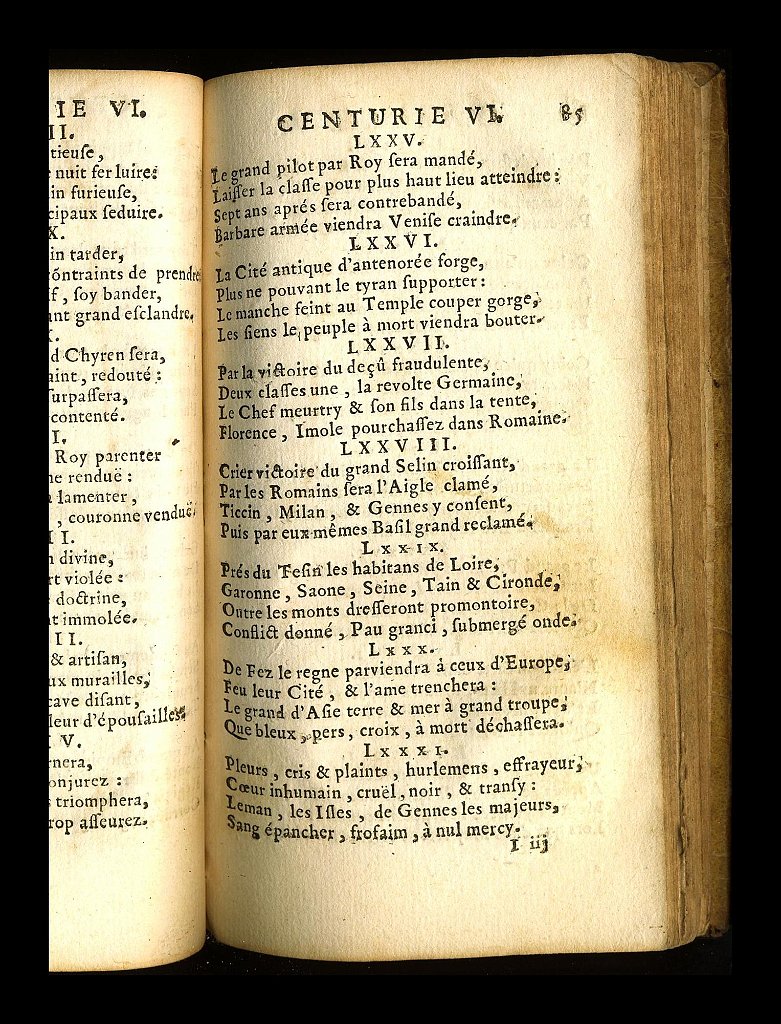 IE VI.
II.
tieuſe,
nuit fer luire:
in furieuſe,
cipaux ſeduire.
X.
in tarder,
cõntraints de prendre
f, ſoy bander,
ant grand eſclandre.
d Chyren ſera,
aint, redouté:
ſurpaſſera,
contenté.
I.
Roy parenter
ne renduë:
lamenter,
, couronne venduë.
II.
divine,
rt violée:
doctrine,
t immolée.
II.
& artiſan,
ux murailles,
cave diſant,
leur d'épouſailles.
V.
rnera,
onjurez:
triomphera,
rop aſſeurez.
CENTURIE VI. 85
LXXV.
Le grand pilot par Roy ſera mandé,
Laiſſer la claſſe pour plus haut lieu atteindre:
Sept ans aprés ſera contrebandé,
Barbare armée viendra Veniſe craindre.
LXXVI.
La Cité antique d'antenorée forge,
Plus ne pouvant le tyran ſupporter:
Le manche feint au Temple couper gorge,
Les ſiens le peuple à mort viendra bouter.
LXXVII.
Par la victoire du deçû fraudulente,
Deux claſſes une, la revolte Germaine,
Le Chef meurtry & ſon fils dans la tente,
Florence, Imole pourchaſſez dans Romaine.
LXXVIII.
Crier victoire du grand Selin croiſſant,
Par les Romains ſera l'Aigle clamé,
Ticcin, Milan, & Gennes y conſent,
Puis par eux mêmes Baſil grand reclamé.
LXXIX.
Prés du Teſin les habitans de Loire,
Garonne, Saone, Seine, Tain & Gironde,
Outre les monts dreſſeront promontoire,
Conflict donné, Pau granci, ſubmergé onde.
LXXX.
De Fez le regne parviendra à ceux d'Europe,
Feu leur Cité, & l'ame trenchera:
Le grand d'Aſie terre & mer à grand troupe,
Que bleux, pers, croix, à mort déchaſſera.
LXXXI.
Pleurs, cris & plaints, hurlemens, effrayeur,
Cœur inhumain, cruël, noir, & tranſy:
Leman, les Iſles, de Gennes les majeurs,
Sang épancher, froſaim, à nul mercy.
I iij